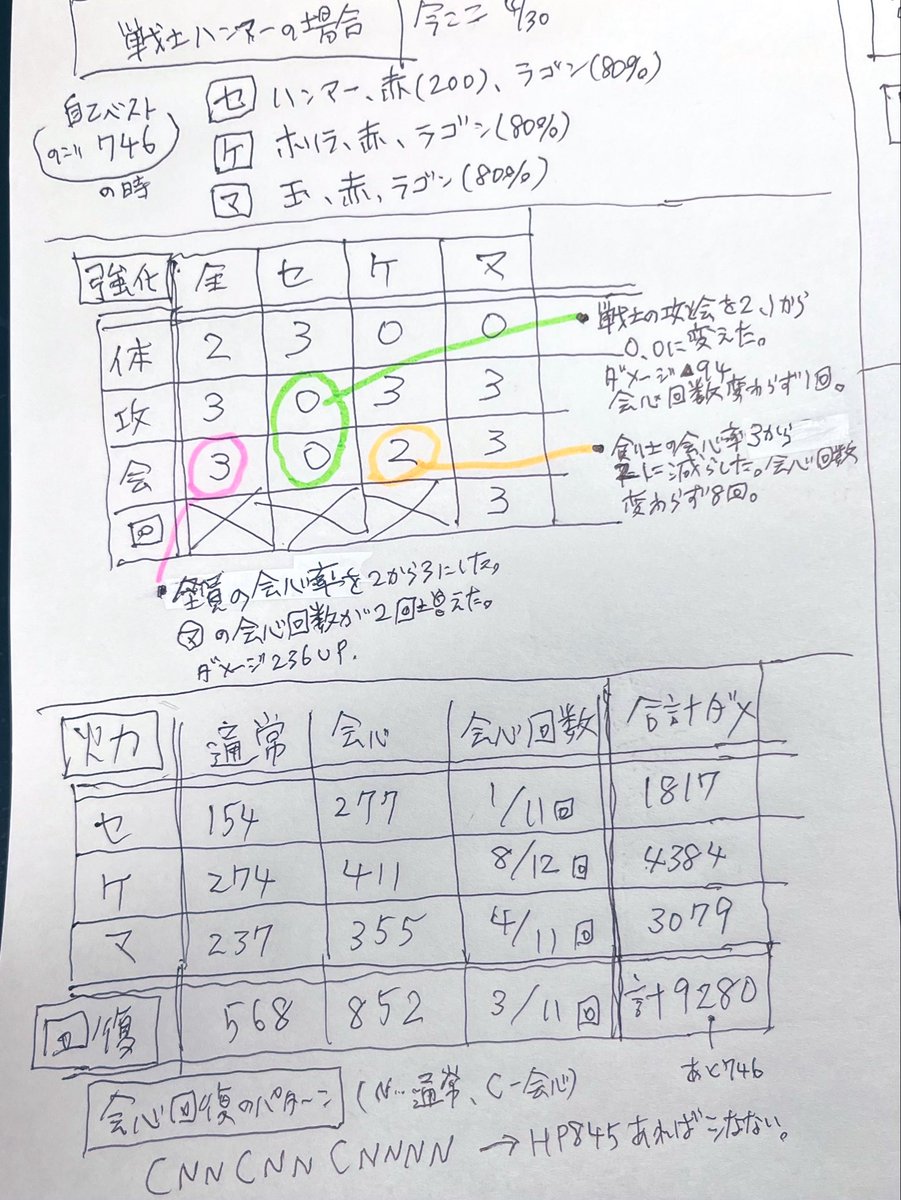 戦士ハンマーの場合
今ここ 4/30
自己ベスト
のこり 746
の時
セ ハンマー、赤(200)、ラゴン(80%)
ケ ホリラ、赤、ラゴン(80%)
マ 玉、赤、ラゴン(80%)
強化 全 セ ケ マ
体 2 3 0 0
攻 3 0 3 3
会 3 0 2 3
回 3
戦士の攻と会を2、1から
0、0に変えた。
ダメージ▲94
会心回数変わらず1回。
剣士の会心率3から
2に減らした。会心回数
変わらず8回。
全員の会心率を2から3にした。
マの会心回数が2回増えた。
ダメージ236UP.
火力 通常 会心 会心回数 合計ダメ
セ 154 277 1/11回 1817
ケ 274 411 8/12回 4384
マ 237 355 4/11回 3079
回復 568 852 3/11回 計9280
あと746
会心回復のパターン (N…通常、C-会心)
CNNCNNCNNNN → HP845あればシなない。